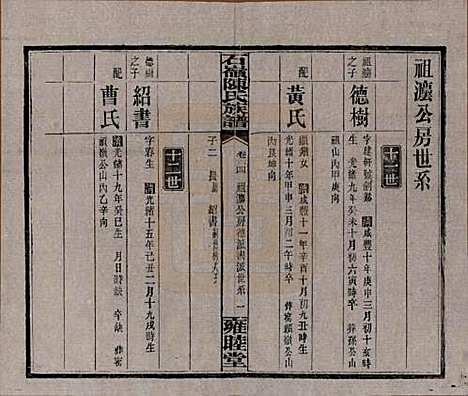 祖灋公房世系
十二世
祖灋之子
德樹
字建軒號劍蓀 清咸豐十年庚申三月初十亥時生
光緒九年癸未十月初六寅時卒 葬孫公山內甲庚向
配
黃氏
清咸豐十一年辛酉十月初九丑時生
光緒十年甲申三月初二午時卒 公山內艮坤向
子二 長 紹書
石嶺陳氏族譜
卷四
祖灋公房德派世系
一
雍睦堂
十三世
德樹之子
紹書
字春生 清光緒十五年己丑二月十九戌時生
配
曹氏
清光緒十九年癸巳生 月日時缺 卒缺 葬
嶺公山內乙辛向